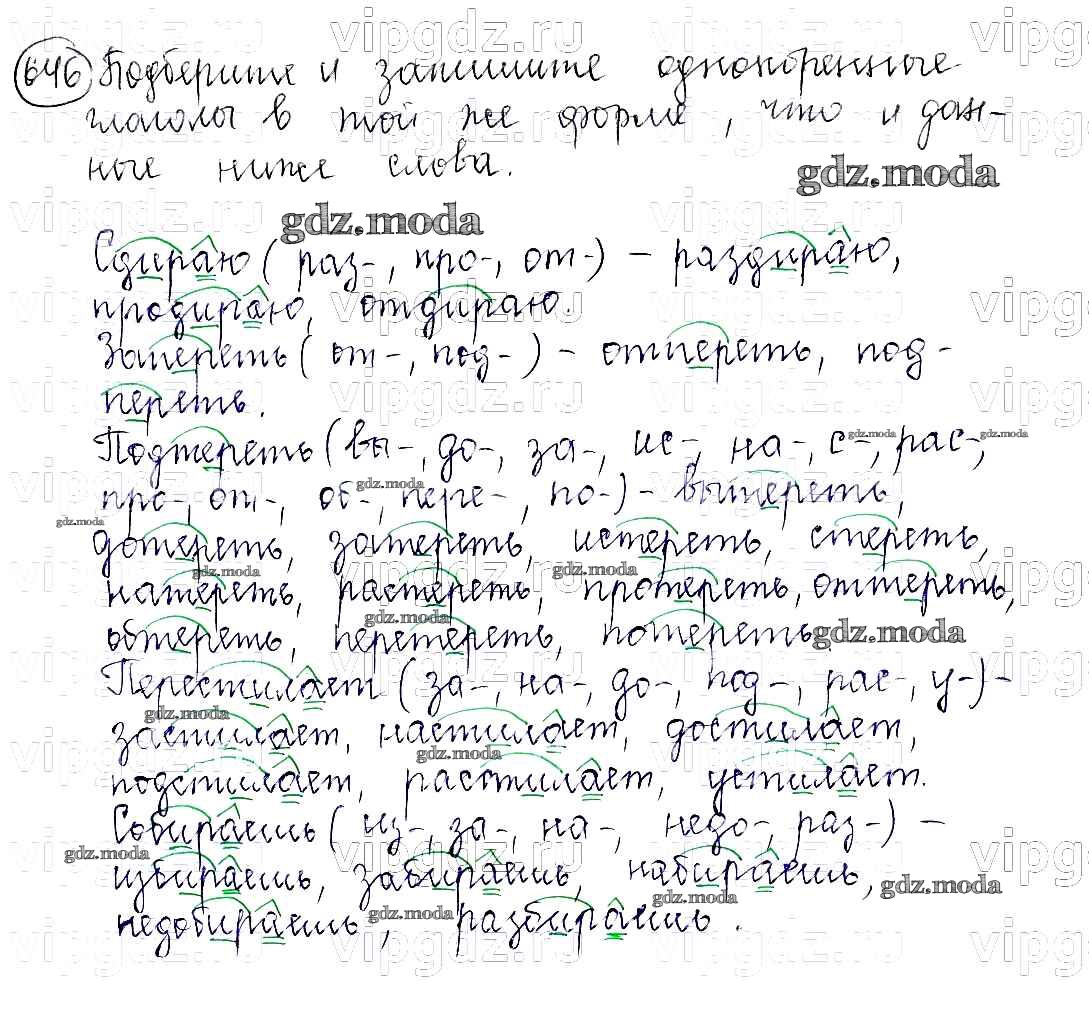 646 Подберите и запишите однокоренные
глаголы в той же форме, что и дан-
ные ниже слова.
gdz.moda
gdz.moda
Сдираю (раз-, про-, от-) – раздираю,
продираю, отдираю.
Затереть (от-, под-) – отпереть, под-
переть.
Подтереть (вы-, до-, за-, ис-, на-, с-, рас-,
про-, от-, об-, пере-, по-) – вытереть,
дотереть, затереть, истереть, стереть,
натереть, растереть, протереть, оттереть,
обтереть, перетереть, потереть.
Перестилает (за-, на-, до-, под-, рас-, у-) –
застилает, настилает, достилает,
подстилает, расстилает, устилает.
Собираешь (из-, за-, на-, недо-, раз-) –
избираешь, забираешь, набираешь,
недобираешь, разбираешь.